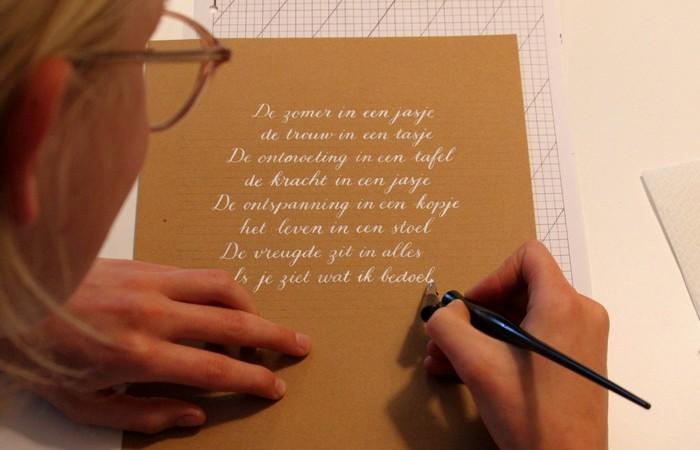 De zomer in een jasje
de trouw in een tasje
De ontmoeting in een tafel
de kracht in een jasje
De ontspanning in een kopje
het leven in een stoel
De vreugde zit in alles
ls je ziet wat ik bedoel